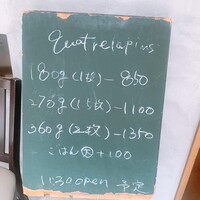 quatrelapins
180g(1枚)-850
270g(1.5枚)-1100
360g(2枚)-1350
ごはん大+100
11:30open 予定